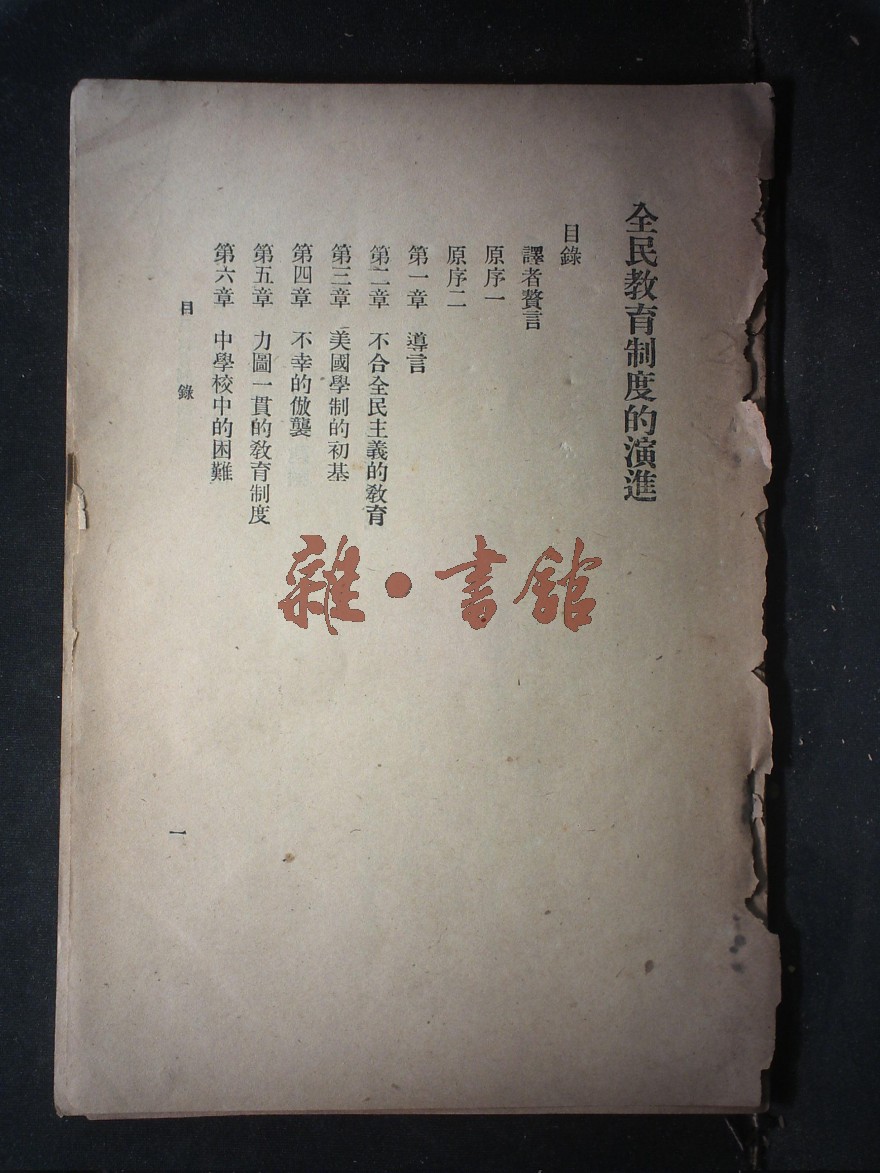 全民教育制度的演進
目錄
譯者贅言
原序一
原序二
第一章　導言
第二章　不合全民主義的教育
第三章　美國學制的初基
第四章　不幸的倣襲
第五章　力圖一貫的教育制度
第六章　中學校中的困難
目　錄
一
雜・書館